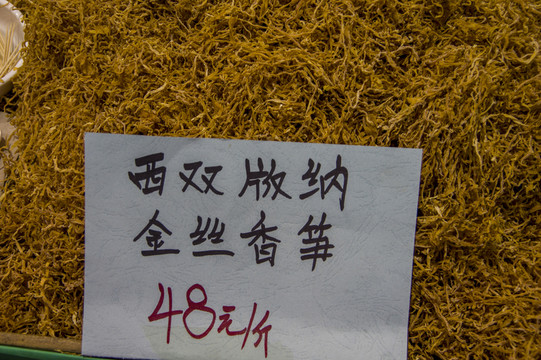 西双版纳
金丝香笋
48元/价